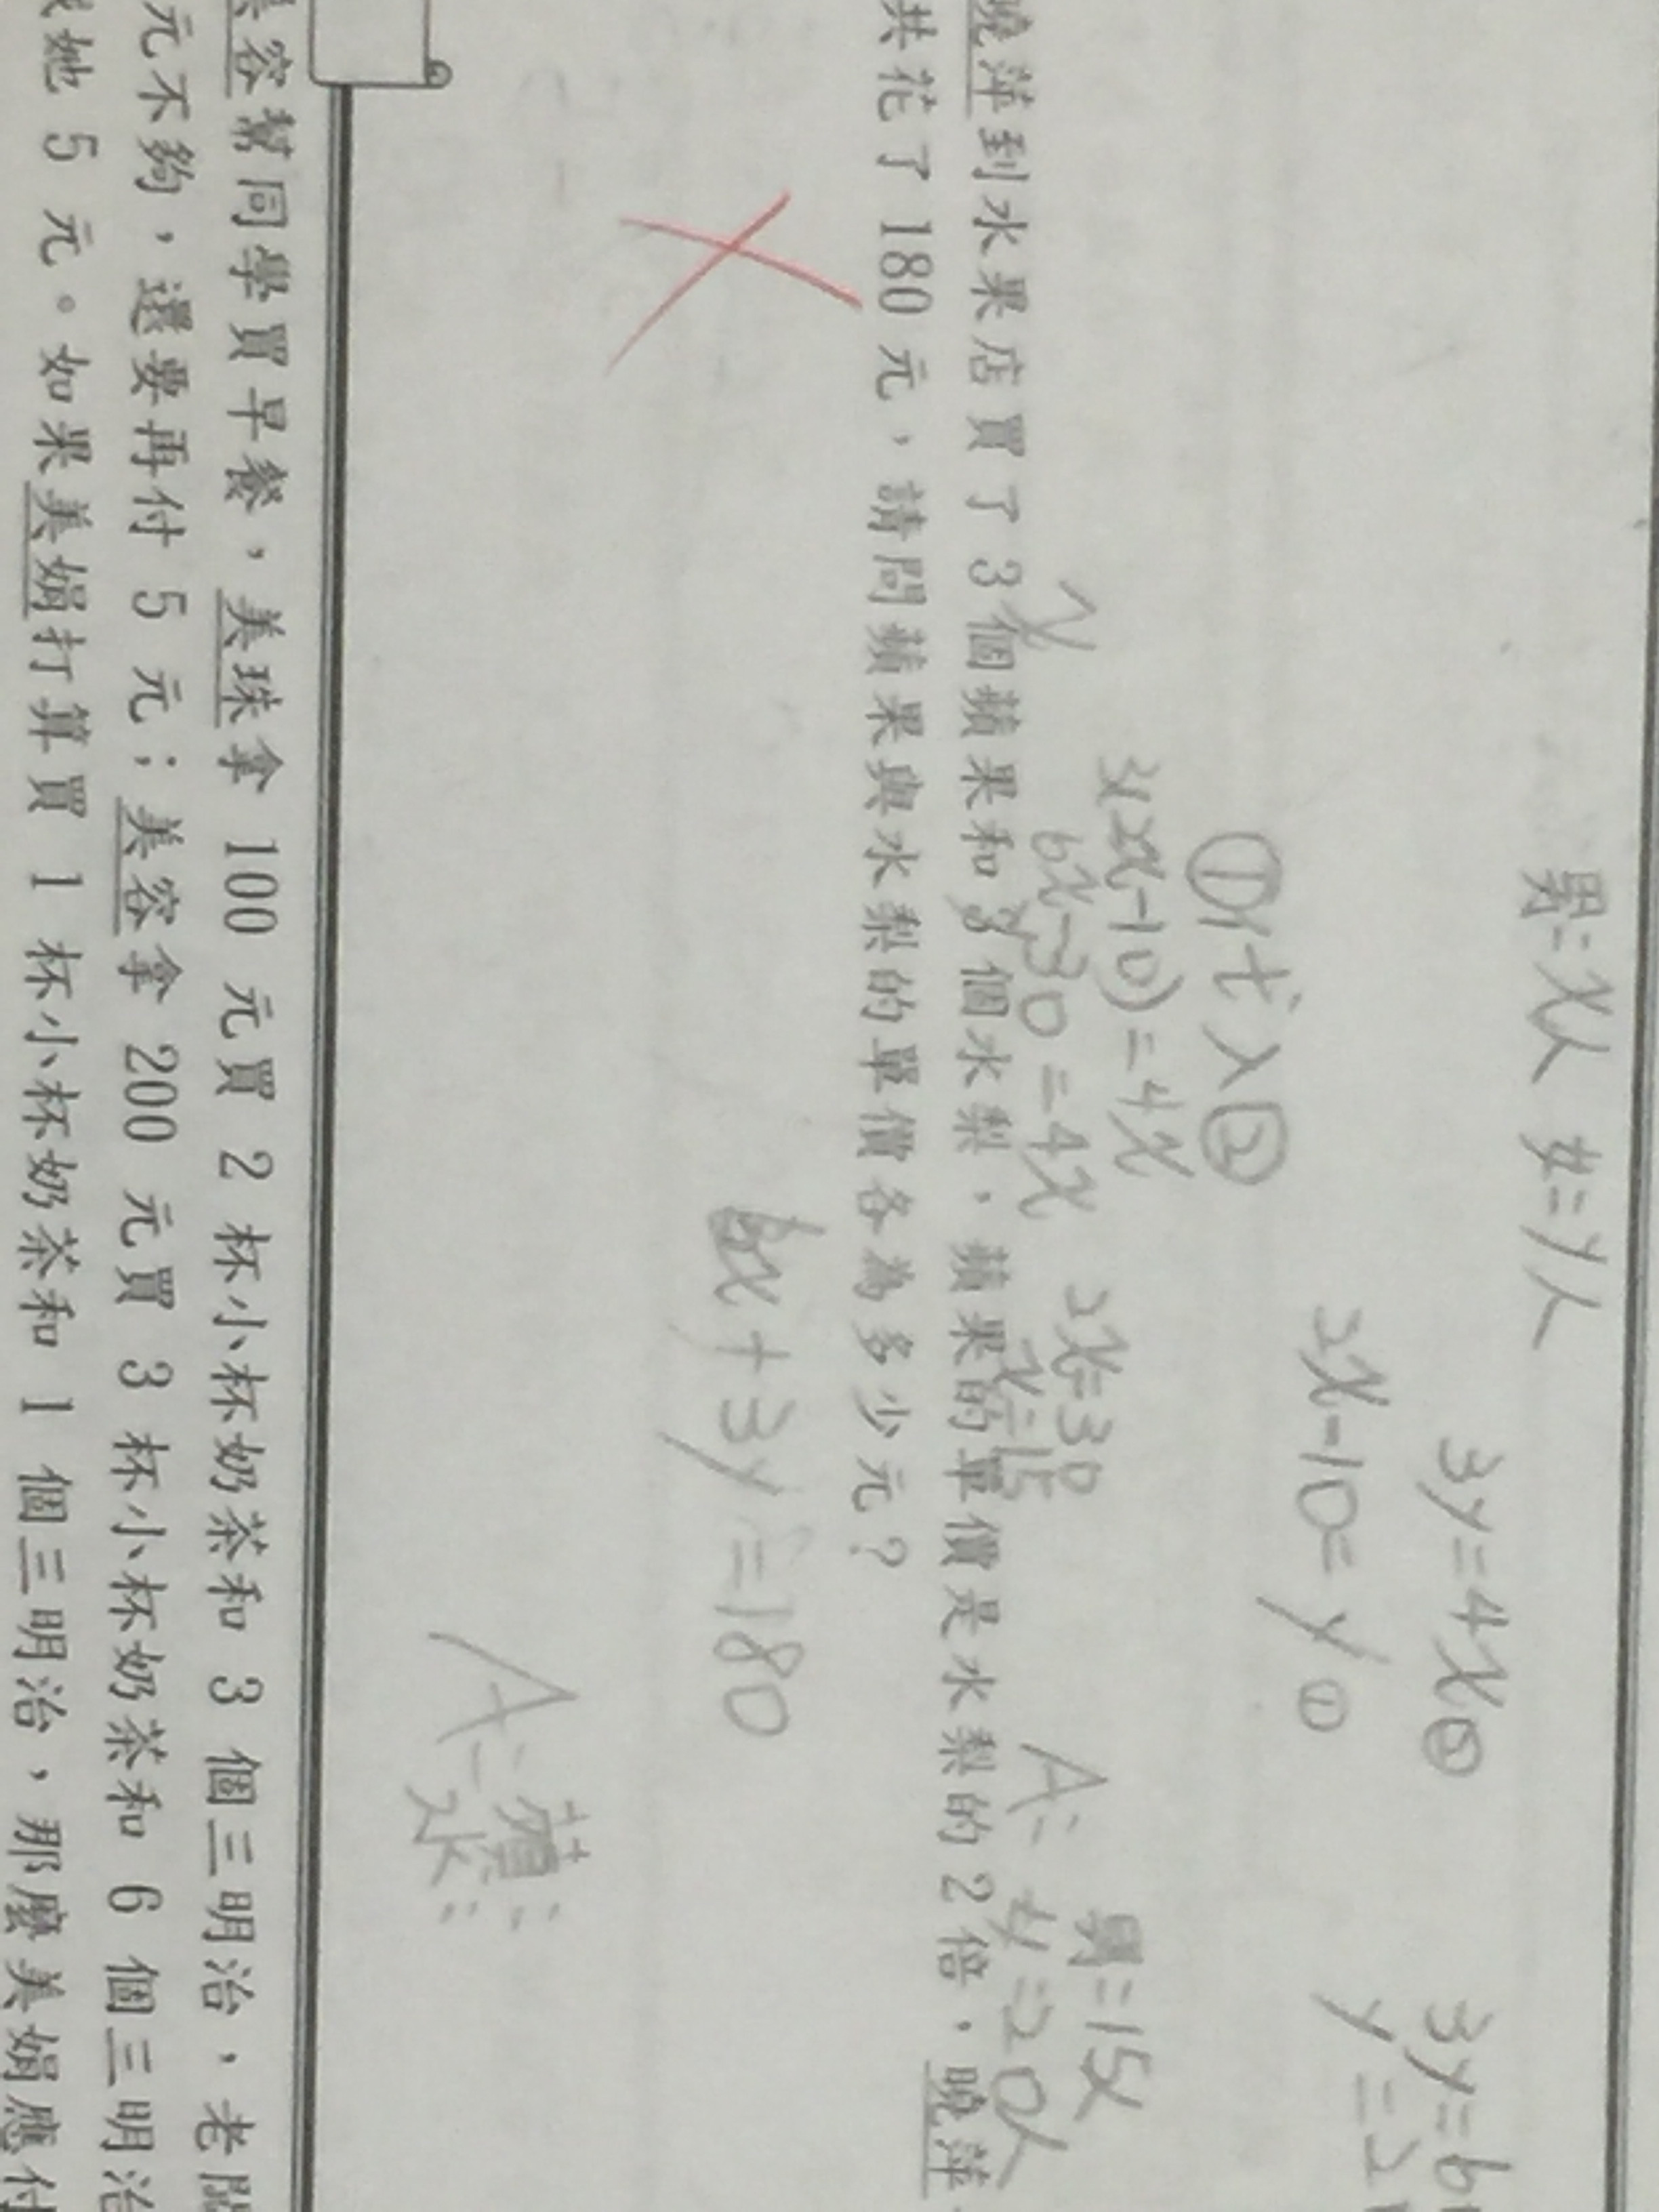 男=x人 女=y人
3y=4x②
2x-10=y①
3y=6
①代入②
3(2x-10)=4x
6x-30=4x
2x=30
x=15
A: 男=15人
女=20人
曉萍到水果店買了 3 個蘋果和 3 個水梨，蘋果的單價是水梨的 2 倍，曉萍
共花了 180 元，請問蘋果與水梨的單價各為多少元？
6x+3y=180
A: 蘋:
水:
容幫同學買早餐，美珠拿 100 元買 2 杯小杯奶茶和 3 個三明治，老闆
元不夠，還要再付 5 元；美容拿 200 元買 3 杯小杯奶茶和 6 個三明治
她 5 元。如果美娟打算買 1 杯小杯奶茶和 1 個三明治，那麼美娟應付